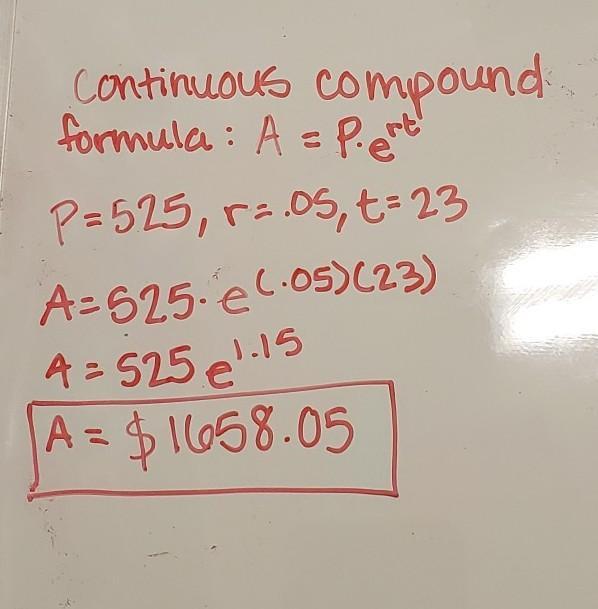 Continuous compound
formula: A = P·e^rt
P=525, r=.05, t=23
A=525·e^(.05)(23)
A=525e^1.15
A=$1658.05